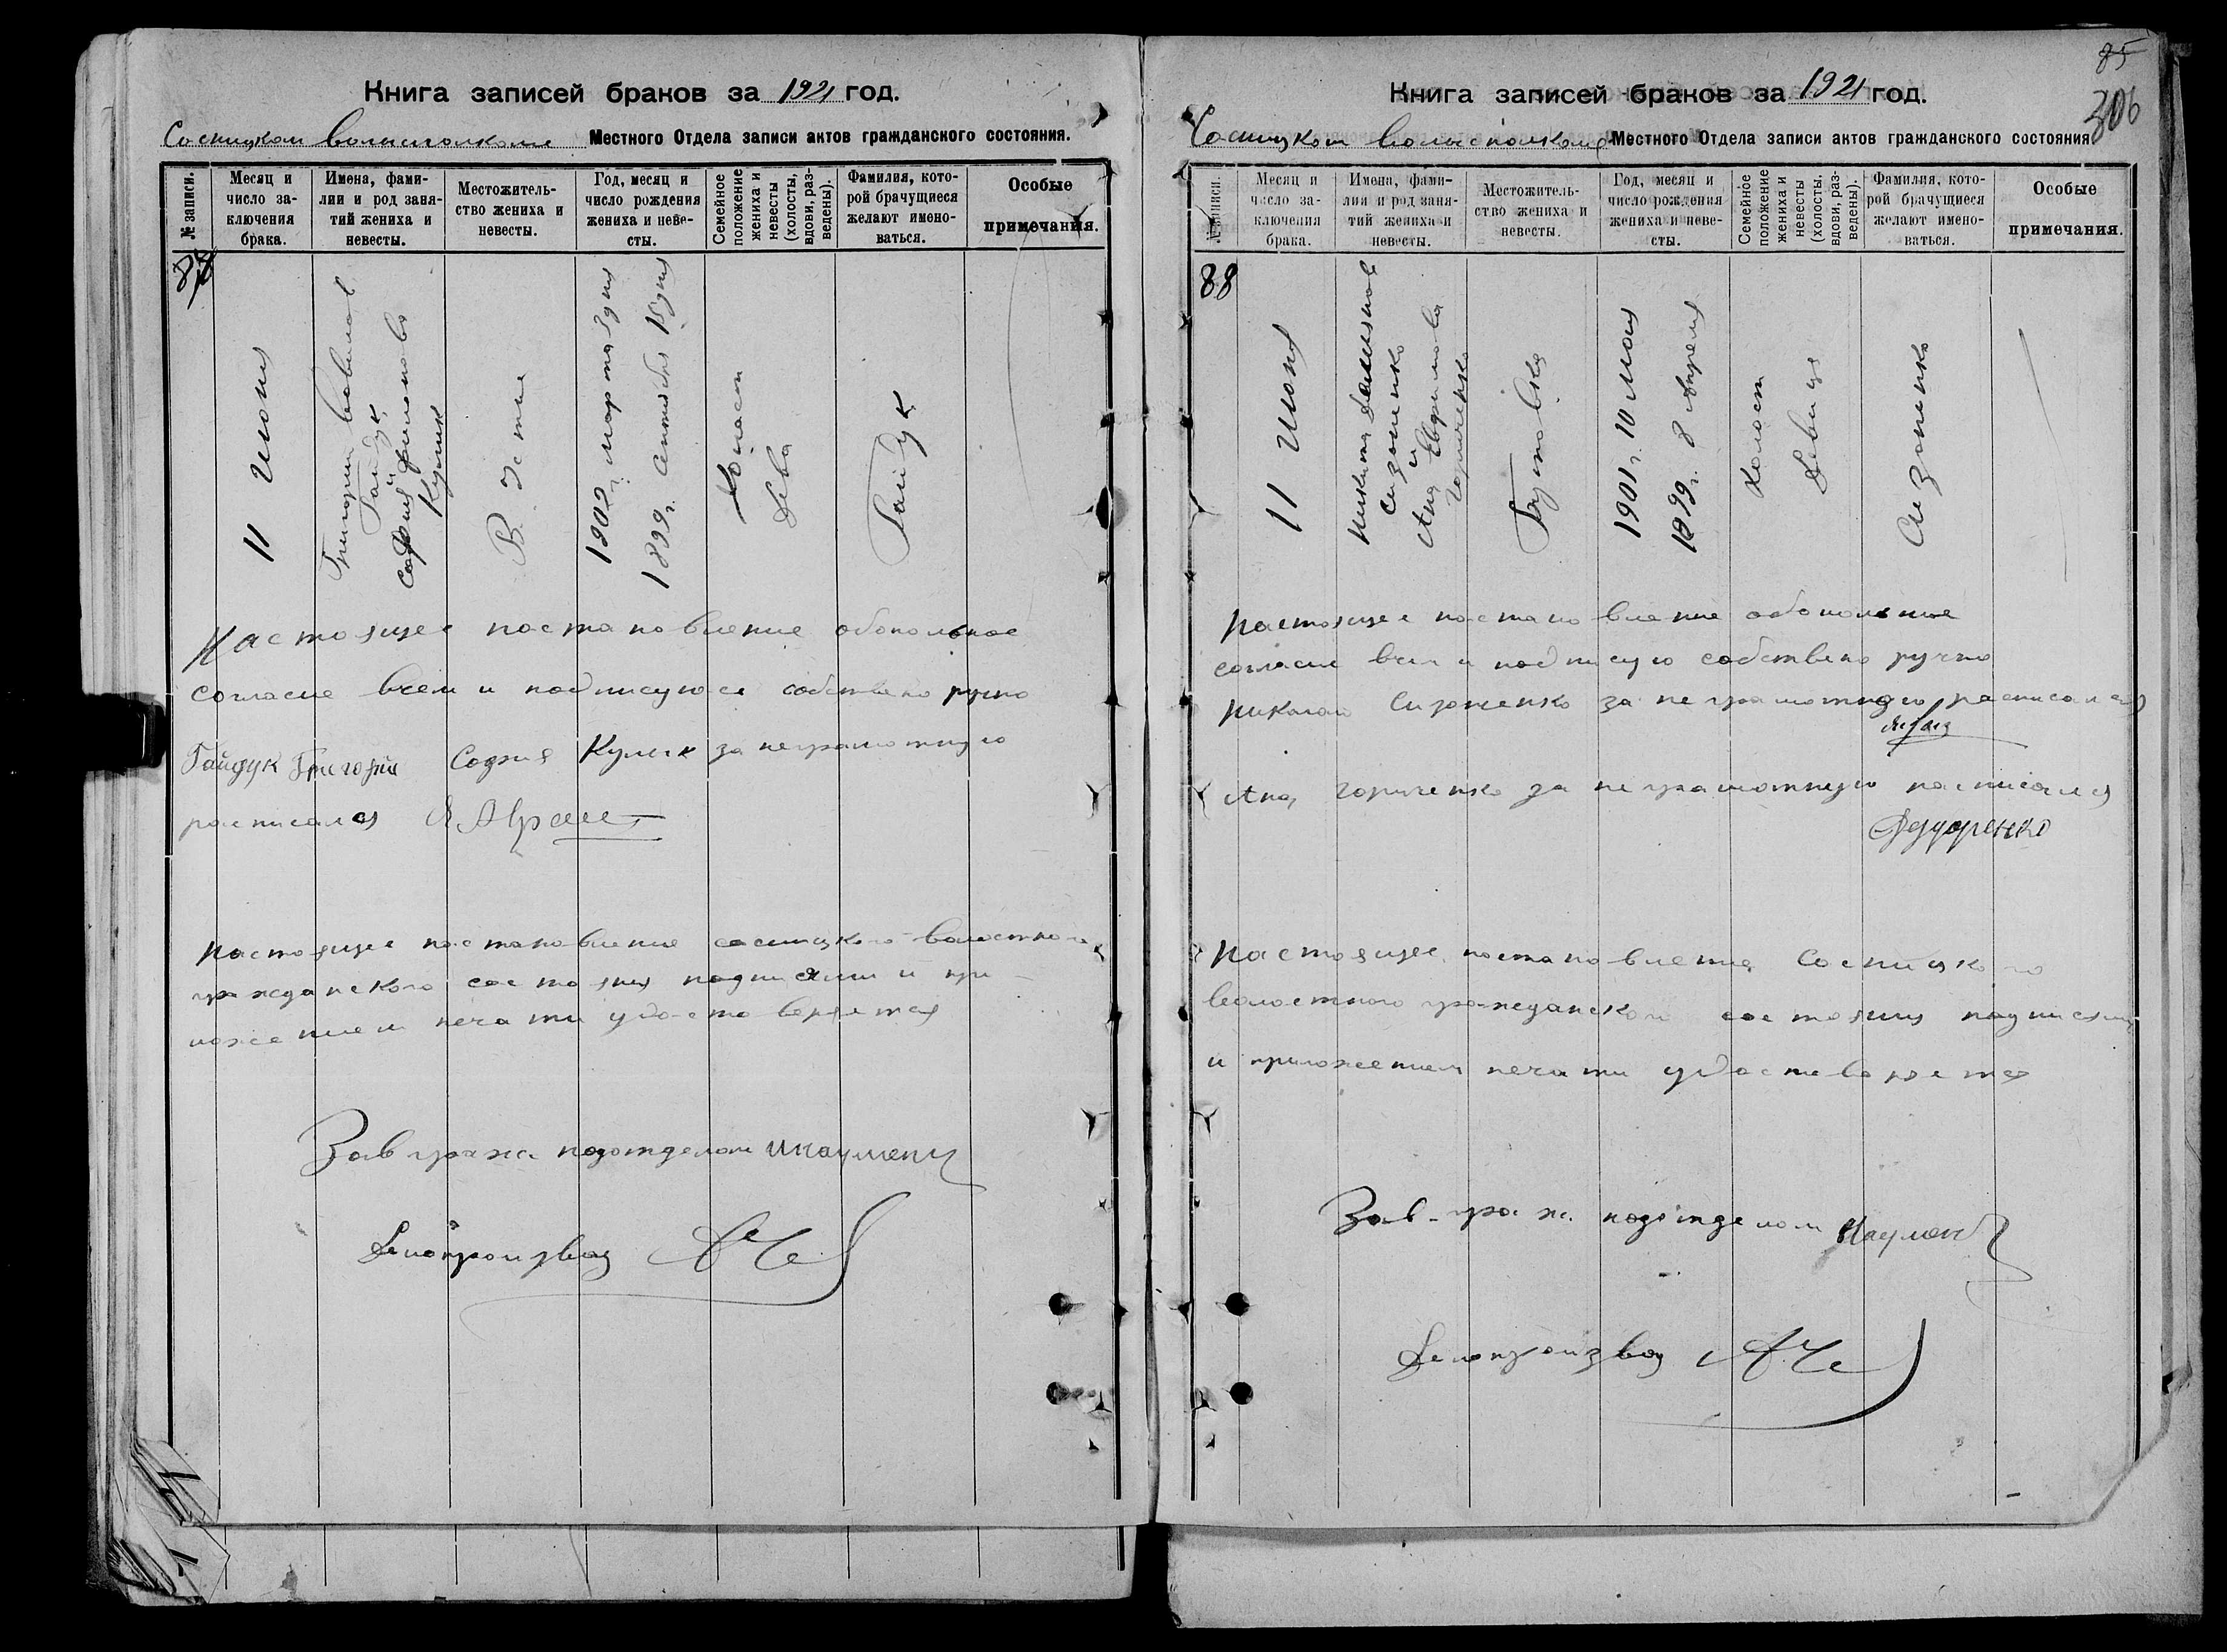 Книга записей браков за 1921 год.
Сосницком волисполкоме Местного Отдела записи актов гражданского состояния.
№ записи.
Месяц и число заключения брака.
Имена, фамилии и род занятий жениха и невесты.
Местожительство жениха и невесты.
Год, месяц и число рождения жениха и невесты.
Семейное положение жениха и невесты (холосты, вдовы, разведены).
Фамилия, которой брачущиеся желают именоваться.
Особые примечания.
11 Июня
Григорий
Гайдук
и
София
Кулик
В. Устье
1902 г. марта 3 дня
1899 г. Сентября 15 дня
Холост
Дева
Гайдук
Настоящее постановление обопольное
согласие всем и подписуюся собствено ручно
Гайдук Григорий София Кулик за неграмотную
расписался
Настоящее постановление сосницкого волостного
гражданского состояния подписями и при-
ложением печати удостоверяется
Зав гражд. подотделом
Делопроизвод
85
306
Книга записей браков за 1921 год.
Сосницком волисполкоме Местного Отдела записи актов гражданского состояния
записи.
Месяц и число заключения брака.
Имена, фамилии и род занятий жениха и невесты.
Местожительство жениха и невесты.
Год, месяц и число рождения жениха и невесты.
Семейное положение жениха и невесты (холосты, вдовы, разведены).
Фамилия, которой брачущиеся желают именоваться.
Особые примечания.
88
11 Июня
Никита
Сизоненко
и
Ана Евдокимова
Горченко
Бутовка
1901 г. 10 Мая
1899 г. 8 Апреля
Холост
Девица
Сизоненко
Настоящее постановление обопольное
согласие всем и подписую собствено ручно
Сизоненко за неграмотного расписался
Ана Горченко за неграмотную расписался
Федоренко
Настоящее постановление Сосницкого
волостного гражданского состояния подписями
и приложением печати удостоверяется
Зав. граж. подотделом
Делопроизвод